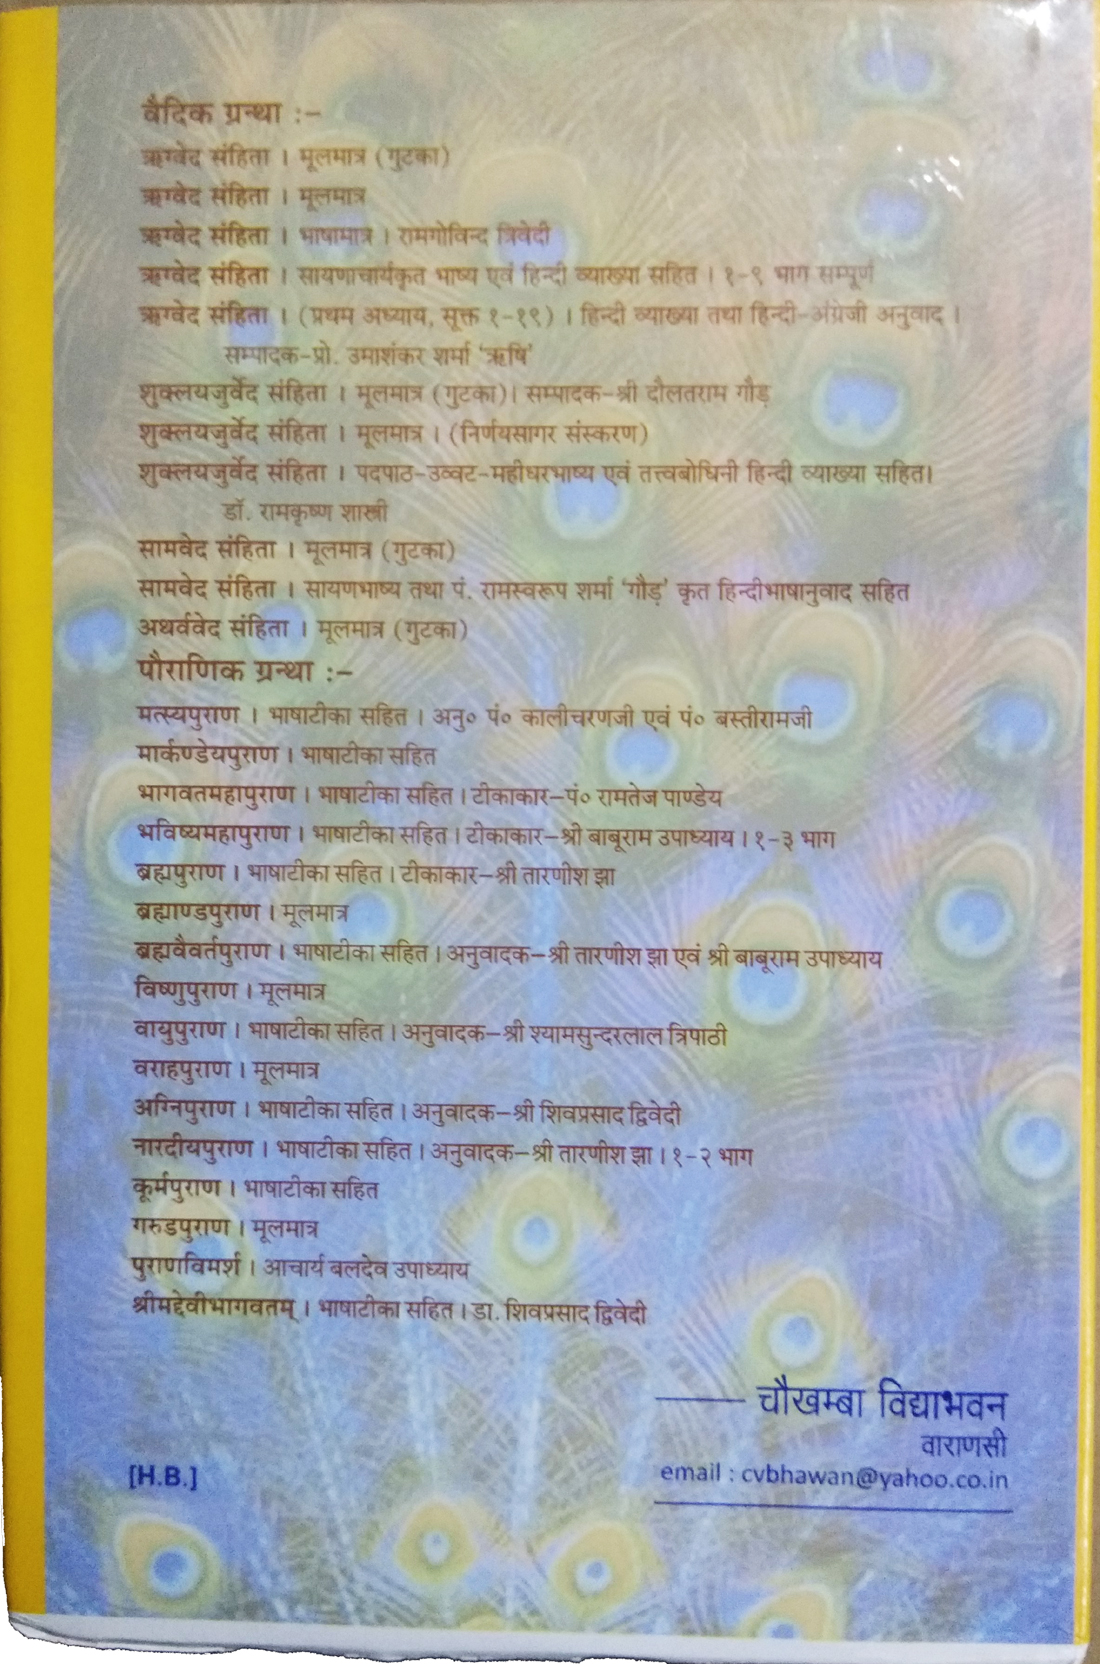 वैदिक ग्रन्था :-
ऋग्वेद संहिता । मूलमात्र (गुटका)
ऋग्वेद संहिता । मूलमात्र
ऋग्वेद संहिता । भाषामात्र । रामगोविन्द त्रिवेदी
ऋग्वेद संहिता । सायणाचार्यकृत भाष्य एवं हिन्दी व्याख्या सहित । १-९ भाग सम्पूर्ण
ऋग्वेद संहिता । (प्रथम अध्याय, सूक्त १-१९) । हिन्दी व्याख्या तथा हिन्दी-अंग्रेजी अनुवाद ।
सम्पादक-प्रो. उमाशंकर शर्मा ‘ऋषि’
शुक्लयजुर्वेद संहिता । मूलमात्र (गुटका)। सम्पादक-श्री दौलतराम गौड़
शुक्लयजुर्वेद संहिता । मूलमात्र । (निर्णयसागर संस्करण)
शुक्लयजुर्वेद संहिता । पदपाठ-उव्वट-महीधरभाष्य एवं तत्त्वबोधिनी हिन्दी व्याख्या सहित।
डॉ. रामकृष्ण शास्त्री
सामवेद संहिता । मूलमात्र (गुटका)
सामवेद संहिता । सायणभाष्य तथा पं. रामस्वरूप शर्मा ‘गौड़’ कृत हिन्दीभाषानुवाद सहित
अथर्ववेद संहिता । मूलमात्र (गुटका)
पौराणिक ग्रन्था :-
मत्स्यपुराण । भाषाटीका सहित । अनु० पं० कालीचरणजी एवं पं० बस्तीरामजी
मार्कण्डेयपुराण । भाषाटीका सहित
भागवतमहापुराण । भाषाटीका सहित । टीकाकार–पं० रामतेज पाण्डेय
भविष्यमहापुराण । भाषाटीका सहित । टीकाकार–श्री बाबूराम उपाध्याय । १-३ भाग
ब्रह्मपुराण । भाषाटीका सहित । टीकाकार–श्री तारणीश झा
ब्रह्माण्डपुराण । मूलमात्र
ब्रह्मवैवर्तपुराण । भाषाटीका सहित । अनुवादक–श्री तारणीश झा एवं श्री बाबूराम उपाध्याय
विष्णुपुराण । मूलमात्र
वायुपुराण । भाषाटीका सहित । अनुवादक–श्री श्यामसुन्दरलाल त्रिपाठी
वराहपुराण । मूलमात्र
अग्निपुराण । भाषाटीका सहित । अनुवादक–श्री शिवप्रसाद द्विवेदी
नारदीयपुराण । भाषाटीका सहित । अनुवादक–श्री तारणीश झा । १-२ भाग
कूर्मपुराण । भाषाटीका सहित
गरुडपुराण । मूलमात्र
पुराणविमर्श । आचार्य बलदेव उपाध्याय
श्रीमद्देवीभागवतम् । भाषाटीका सहित । डा. शिवप्रसाद द्विवेदी
चौखम्बा विद्याभवन
वाराणसी
[H.B.]
email : cvbhawan@yahoo.co.in